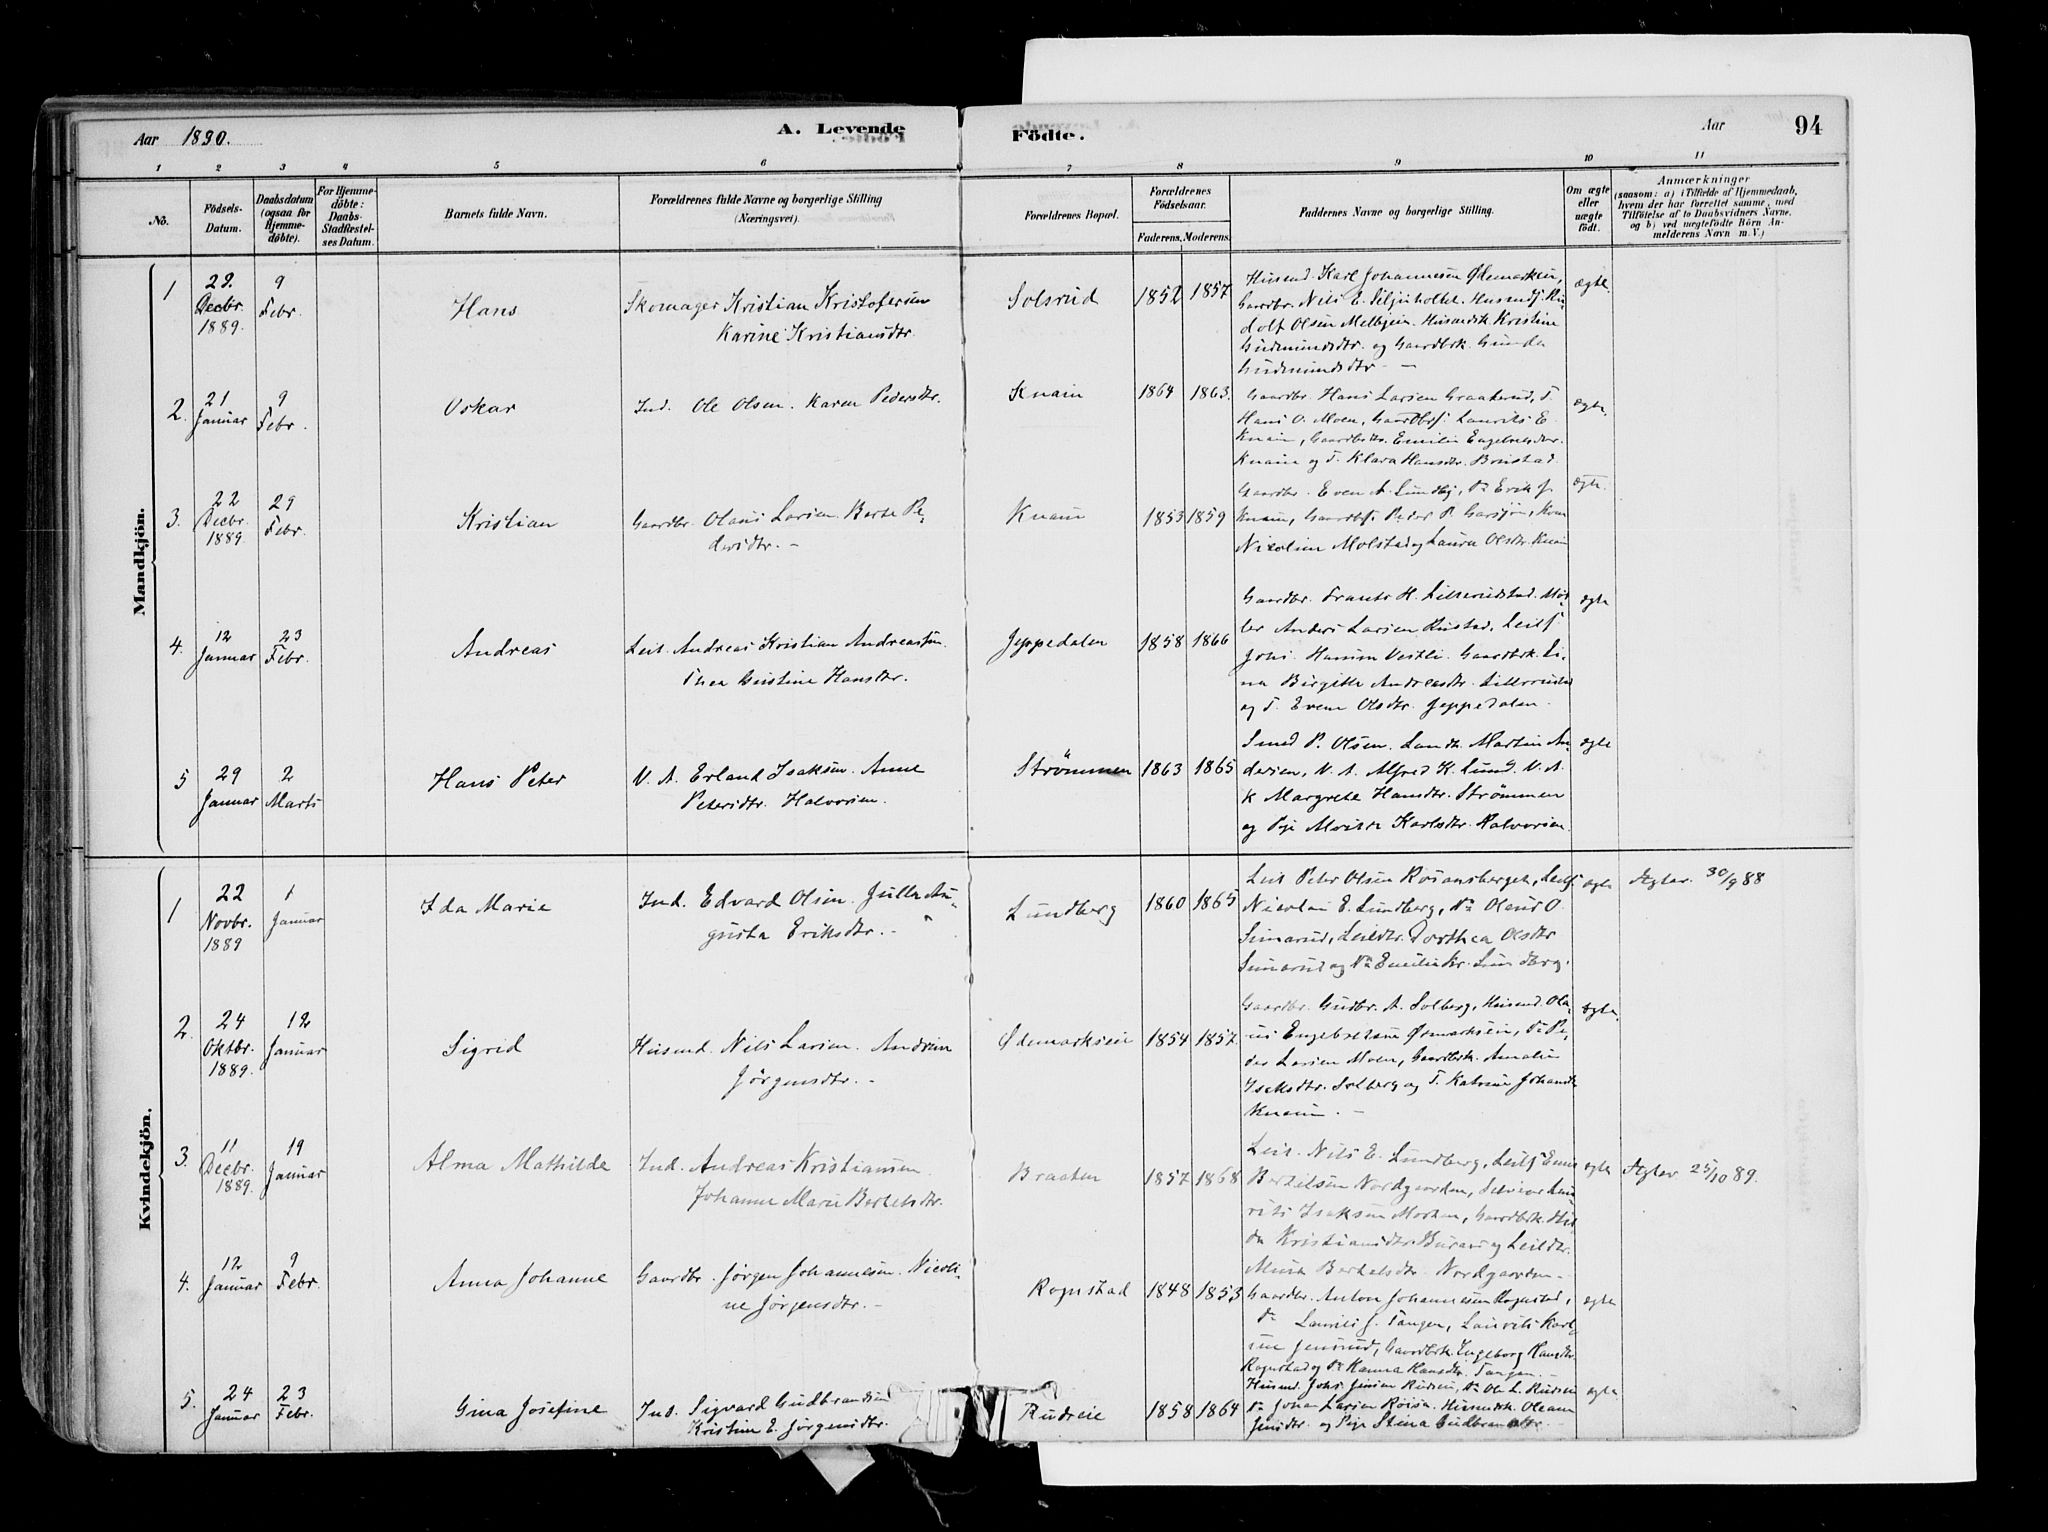 Aar 1890.
A. Levende
Födte.
Aar
94
1 2 3 4 5 6 7 8 9 10 11
No.
Födsels-Datum.
Daabsdatum (ogsaa for Hjemme-döbte).
For Hjemme-döbte: Daabs-Stadfæstel-ses Datum.
Barnets fulde Navn.
Forældrenes fulde Navne og borgerlige Stilling (Næringsvei).
Forældrenes Bopæl.
Forældrenes Födselsaar.
Faderens. Moderens.
Faddernes Navne og borgerlige Stilling.
Om ægte eller uægte födt.
Anmærkninger
(saasom: a) i Tilfælde af Hjemmedaab,
hvem der har forrettet samme, med
Tilföielse af to Daabsvidners Navne,
og b) ved uægtefödte Börn An-
melderens Navn m. V.)
Mandkjön.
1 29. Decbr. 1889. 9 Febr. Hans
Skomager Kristian Kristofersen
Karine Kristiansdtr.
Solsrud 1852 1857
Husmd. Karl Johannesen Ødemarksein,
Gaardbr. Nils E. Siljuholtet. Husmdsf. Ru-
dolf Olsen Melbyein. Husmdsk. Kristine
Gudmundsdtr. og Gaardbrk. Gunda
Gudmundsdtr. —
ægte.
2. 21 Januar 9 Febr. Oskar
Ind. Ole Olsen. Karen Pedersdtr.
Knain 1864 1863.
Gaardbr. Hans Larsen Graakerud, T.
Hans O. Moen, Gaardbrsf. Laurits E.
Knain, Gaardbrdtr. Emilie Engebretsdtr.
Knain og T. Klara Hansdtr. Bonstad.
ægte.
3. 22 Decbr. 1889. 29 Febr. Kristian
Gaardbr. Olaus Larsen. Berte Pe-
dersdtr. —
Knain 1853 1859
Gaardbr. Even A. Lundby, Do Erik J.
Knain, Gaardbsf. Peder P. Garsjøn, Kone
Nicoline Molstad og Laura Olsdtr. Knain
ægte.
4. 12 Januar 23 Febr. Andreas
Leil. Andreas Kristian Andreassen.
Thea Gustine Hansdtr.
Jeppedalen 1858 1866
Gaardbr. Frants H. Lillerudstad. Møl-
ler Anders Larsen Rustad, Leilsf
Johs. Hansen Vestli. Gaardbrk. Li-
na Birgitte Andreasdtr. Lillerudstad
og T. Evene Olsdtr. Jeppedalen.
ægte
5 29 Januar 2 Marts Hans Peter
V. A. Erland Isaksen. Anne
Petersdtr. Halvorsen.
Strömmen 1863 1865
Smed P. Olsen. Landh. Martin An-
dersen, V. A. Alfred K. Lund. V. A.
k Margrete Hansdtr. Strømmen
og Pige Karlsdtr. Halvorsen.
ægte
Kvindekjön.
1 22 Novbr. 1889 1 Januar Ida Marie
Ind. Edvard Olsen. Julla Au-
gusta Eriksdtr. —
Lundberg 1860 1865
Leil. Peter Olsen Rosansberget, Leilsf.
Nicolai E. Lundberg, Do Olaus O.
Simarud, Leildtr. Dorthea Olsdtr
Simarud og Do Emilie Kr. Lundberg.
ægte
Ægtev. 30/9 88
2. 24 Oktbr. 1889. 12 Januar Sigrid
Husmd. Nils Larsen. Andrea
Jørgensdtr. —
Ødemarksein 1854 1857.
Gaardbr. Gudbr. A. Solberg, Husmd. Ola-
us Engebretsen Ødemarksein, Do Pe-
der Larsen Moen, Gaardbrk. Amalie
Isaksdtr. Solberg og T. Katrine Johansdtr
Knain. —
ægte.
3. 11 Decbr. 1889. 19 Januar Alma Mathilde
Ind. Andreas Kristiansen
Johanne Marie Bertelsdtr.
Braaten 1857 1868
Leil. Nils E. Lundberg, Leilsf
Bertelsen Nordgaarden, Selveier Lau-
rits Isaksen Morken, Gaardbrk. Hul-
da Kristiansdtr. Buraas og Leildtr.
Mina Bertelsdtr. Nordgaarden —
ægte
Ægtev. 25/10 89.
4. 12 Januar 9 Febr. Anna Johanne
Gaardbr. Jørgen Johannesen. Nicoli-
ne Jørgensdtr. —
Rognstad 1848 1853
Gaardbr. Anton Johannesen Rognstad,
Do Laurits J. Tangen, Lauvits Karl-
sen Jensrud, Gaardbrk. Engeborg Hansdtr.
Rognstad og Do Hanna Hansdtr. Tangen. —
ægte
5. 24 Januar 23 Febr. Gina Josefine
Ind. Sigvard Gudbrandsen
Kristine E. Jørgensdtr.
Rudseie 1858 1864
Husmd. Johs. Jensen Rudseie, Do Ole L. Rudsen
Do Johan Larsen Røisa. Husmdsk. Oleane
Jensdtr. og Pige Stina Gudbrandsdtr. —
ægte